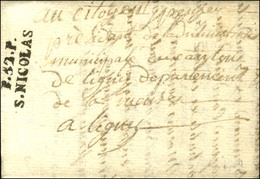 P.52.P.
S.NICOLAS
au Citoyen
president de
municipale du canton
de ligny departement
de la meuse
a ligny